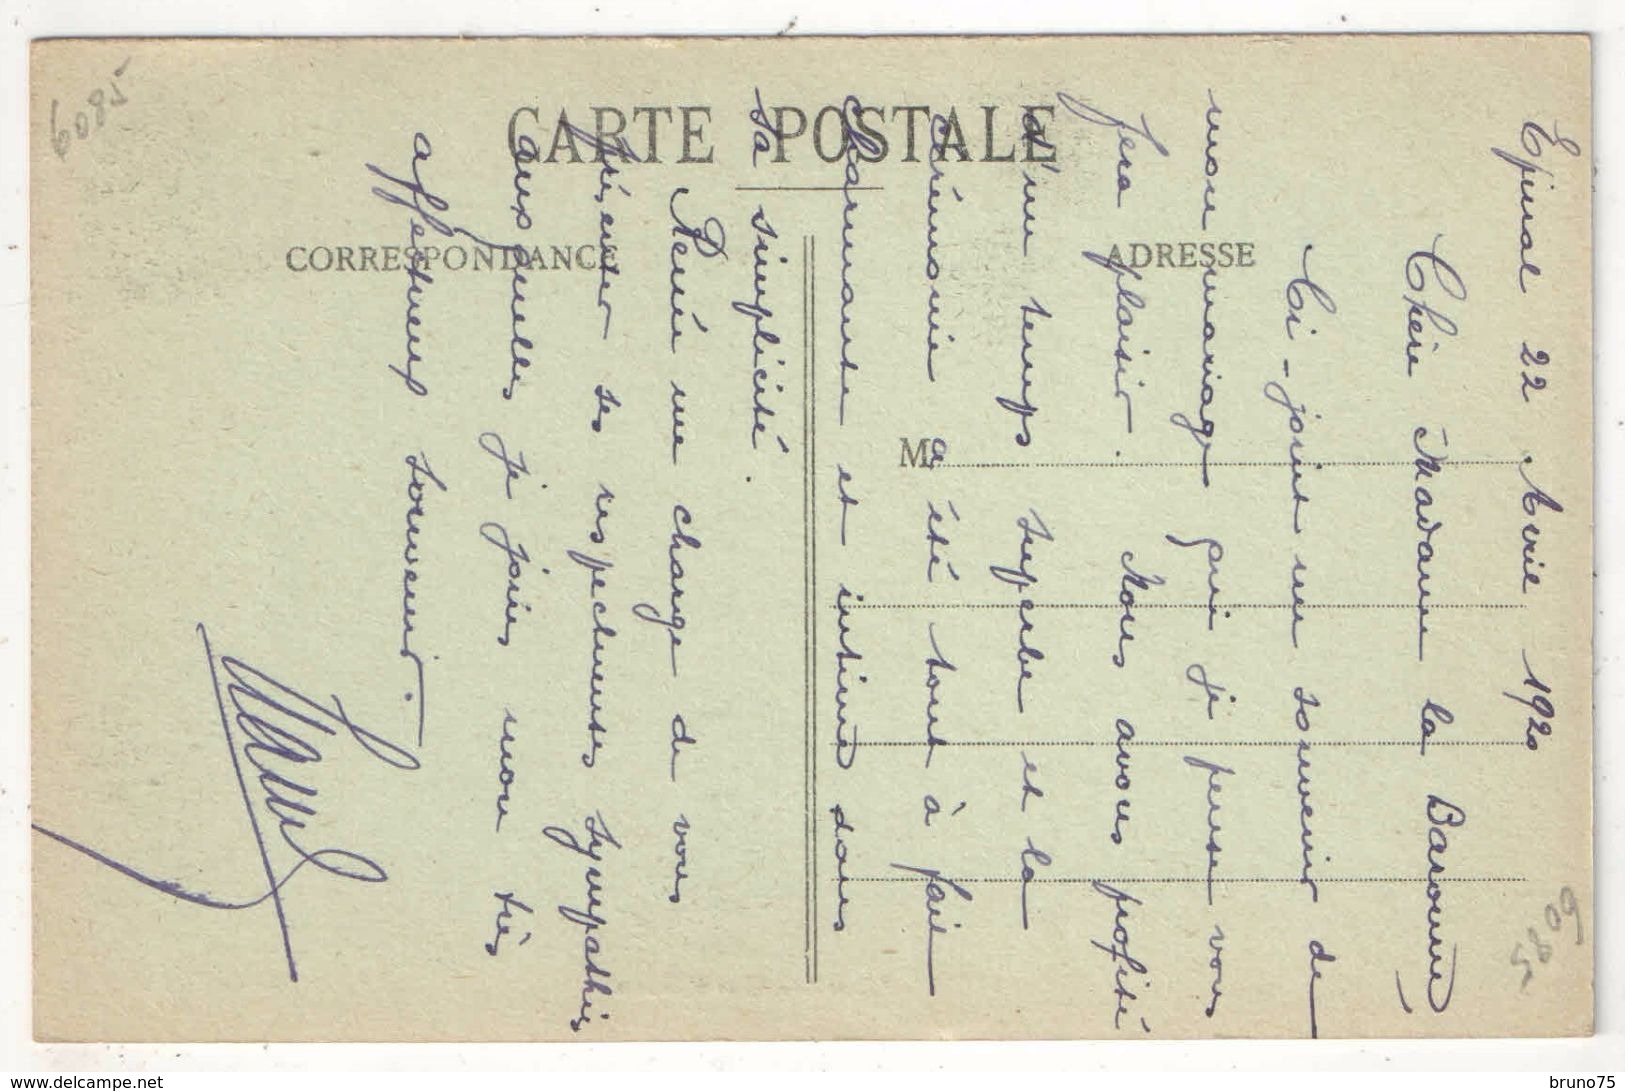 CARTE POSTALE
CORRESPONDANCE
ADRESSE
M
Epinal 22 Avril 1920
Chère Madame la Baronne,
Ci-joint un souvenir de
mon mariage qui je pense vous
fera plaisir. Nous avons profité
d'un temps superbe et la
cérémonie a été tout à fait
charmante et intime dans
sa simplicité.
René me charge de vous
présenter ses respectueuses sympathies
auxquelles je joins mon très
affectueux souvenir.
6085
5809
delcampe.net
bruno75